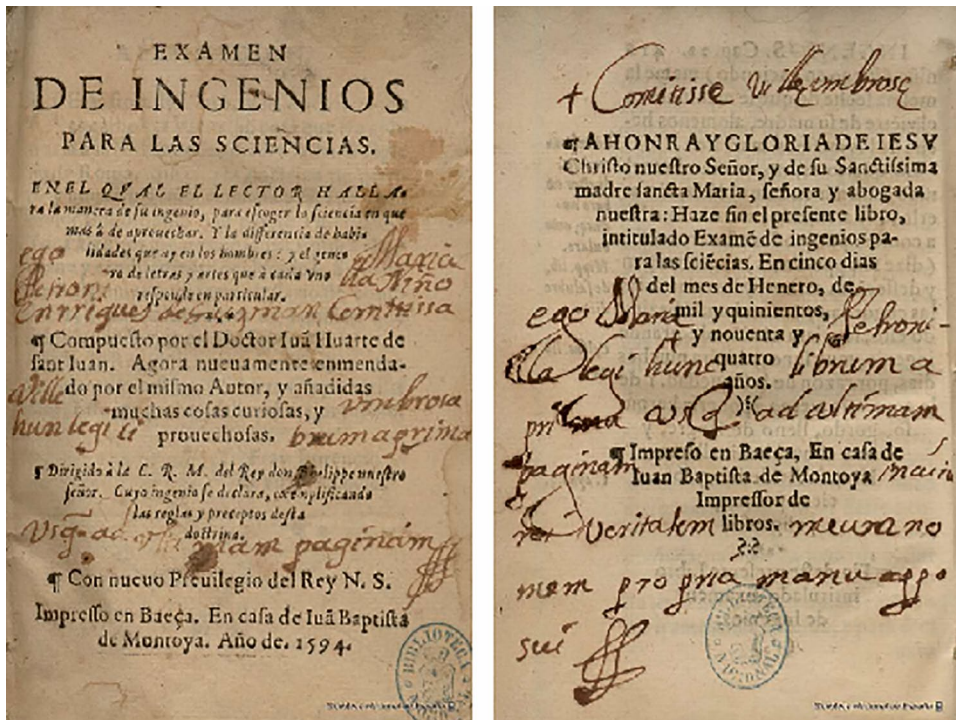 EXAMEN
DE INGENIOS
PARA LAS SCIENCIAS.
EN EL QVAL EL LECTOR HALLA-
ra la manera de su ingenio, para escoger la sciencia en que
mas à de aprouechar. Y la differencia de habi-
lidades que ay en los hombres: y el gene-
ro de letras y artes que à cada vno
responde en particular.
ego Maria
Petroni lla Niño
enrriques de guzman Comitissa
¶ Compuesto por el Doctor Iuã Huarte de
sant Iuan. Agora nueuamente enmenda-
do por el mismo Autor, y añadidas
muchas cosas curiosas, y
prouechosas.
Ville umbrosa
hun legi li brum a prima
¶ Dirigido à la C. R. M. del Rey don Philippe nuestro
señor. Cuyo ingenio se declara, exemplificando
las reglas y preceptos desta
doctrina.
usq ad paginam
¶ Con nueuo Preuilegio del Rey N. S.
Impresso en Baeça. En casa de Iuã Baptista
de Montoya. Año de. 1594.
BIBLIOTECA NACIONAL
+ Comitisse Ville umbrose
¶ A HONRA Y GLORIA DE IESV
Christo nuestro Señor, y de su Sanctissima
madre sancta Maria, señora y abogada
nuestra: Haze fin el presente libro,
intitulado Examẽ de ingenios pa-
ra las sciẽcias. En cinco dias
del mes de Henero, de
mil y quinientos,
y nouenta y
quatro
años.
ego Maria Petroni-
lla legi hunc librum a
prima usq ad ultimam
paginam
¶ Impresso en Baeça, En casa de
Iuan Baptista de Montoya
Impressor de
libros.
veritatem meum no
mem propria manu appo
sui
BIBLIOTECA NACIONAL